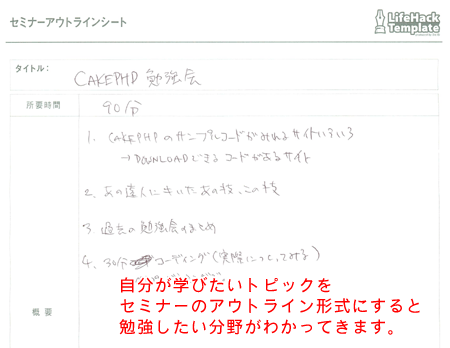 セミナーアウトラインシート
LifeHack
Template
タイトル：
CAKEPHP 勉強会
所要時間
90分
1. CAKEPHPのサンプルコードがみれるサイトいろいろ
→DOWNLOADできるコードがあるサイト
2. あの達人にきいたあの技、この技
3 過去の勉強会のまとめ
4. 30分 コーディング(実際につくってみる)
自分が学びたいトピックを
セミナーのアウトライン形式にすると
概要
勉強したい分野がわかってきます。